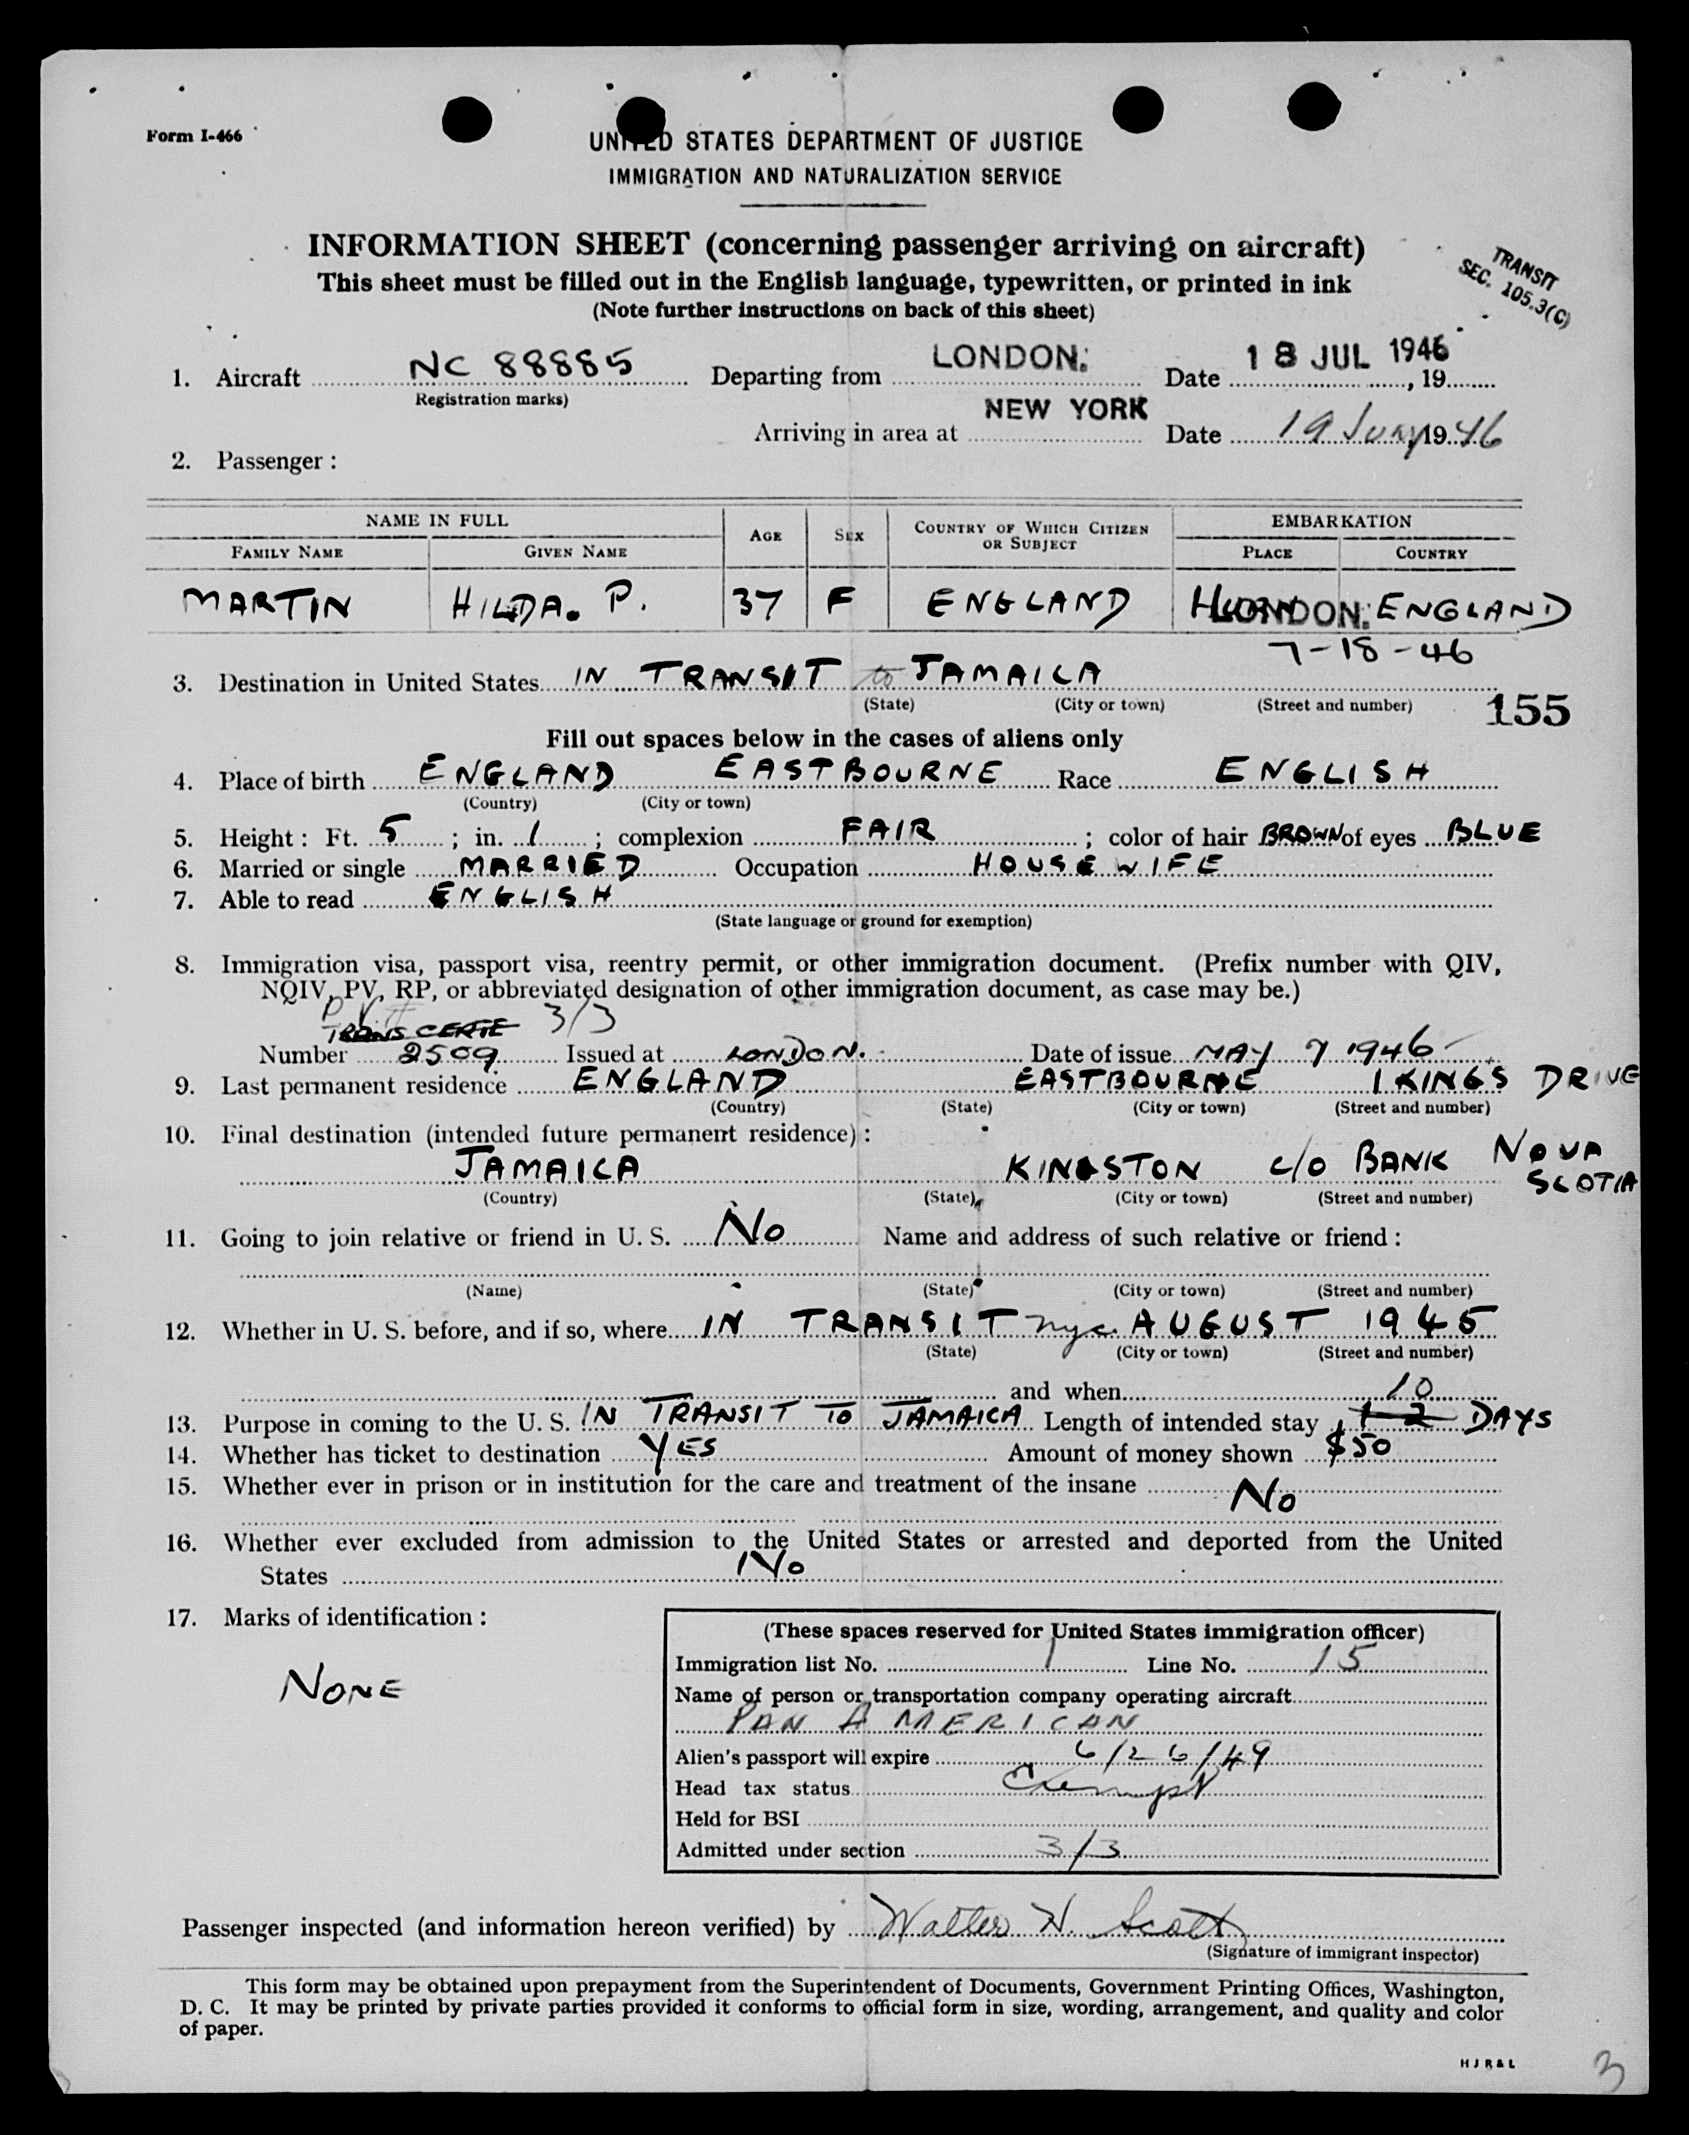 Form I-466
UNITED STATES DEPARTMENT OF JUSTICE
IMMIGRATION AND NATURALIZATION SERVICE
INFORMATION SHEET (concerning passenger arriving on aircraft)
This sheet must be filled out in the English language, typewritten, or printed in ink
(Note further instructions on back of this sheet)
TRANSIT
SEC. 105.3(C)
1. Aircraft NC 88885 Departing from LONDON. Date 18 JUL 1946, 19
Registration marks)
Arriving in area at NEW YORK Date 19 July, 1946
2. Passenger :
NAME IN FULL AGE SEX COUNTRY OF WHICH CITIZEN OR SUBJECT EMBARKATION
FAMILY NAME GIVEN NAME PLACE COUNTRY
MARTIN HILDA. P. 37 F ENGLAND LONDON. ENGLAND
7-18-46
3. Destination in United States IN TRANSIT to JAMAICA
(State) (City or town) (Street and number) 155
Fill out spaces below in the cases of aliens only
4. Place of birth ENGLAND EASTBOURNE Race ENGLISH
(Country) (City or town)
5. Height : Ft. 5 ; in. 1 ; complexion FAIR ; color of hair BROWN of eyes BLUE
6. Married or single MARRIED Occupation HOUSEWIFE
7. Able to read ENGLISH
(State language or ground for exemption)
8. Immigration visa, passport visa, reentry permit, or other immigration document. (Prefix number with QIV,
NQIV, PV, RP, or abbreviated designation of other immigration document, as case may be.)
PV # 3/3
TRANS CERTE
Number 2509 Issued at LONDON. Date of issue MAY 7 1946
9. Last permanent residence ENGLAND EASTBOURNE 1 KINGS DRIVE
(Country) (State) (City or town) (Street and number)
10. Final destination (intended future permanent residence) :
JAMAICA KINGSTON c/o BANK NOVA SCOTIA
(Country) (State) (City or town) (Street and number)
11. Going to join relative or friend in U. S. No Name and address of such relative or friend :
(Name) (State) (City or town) (Street and number)
12. Whether in U. S. before, and if so, where IN TRANSIT nyc. AUGUST 1945
(State) (City or town) (Street and number)
and when 10
13. Purpose in coming to the U. S. IN TRANSIT TO JAMAICA Length of intended stay 1-2 DAYS
14. Whether has ticket to destination YES Amount of money shown $50
15. Whether ever in prison or in institution for the care and treatment of the insane No
16. Whether ever excluded from admission to the United States or arrested and deported from the United
States No
17. Marks of identification :
NONE
(These spaces reserved for United States immigration officer)
Immigration list No. 1 Line No. 15
Name of person or transportation company operating aircraft
PAN AMERICAN
Alien's passport will expire 6/26/49
Head tax status Exempt
Held for BSI
Admitted under section 3/3
Passenger inspected (and information hereon verified) by Walter H. Scott
(Signature of immigrant inspector)
This form may be obtained upon prepayment from the Superintendent of Documents, Government Printing Offices, Washington,
D. C. It may be printed by private parties provided it conforms to official form in size, wording, arrangement, and quality and color
of paper.
HJR&L
3